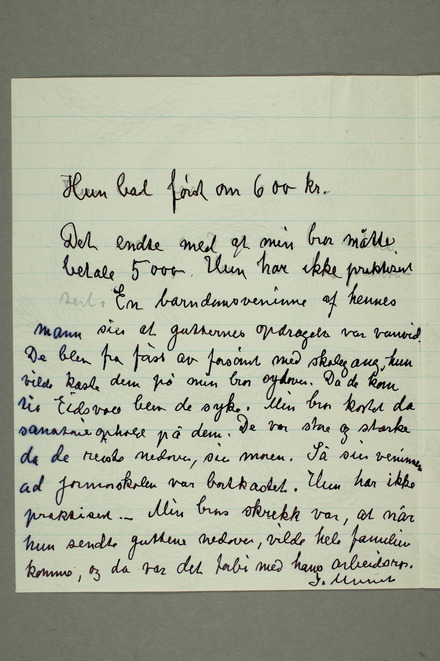 Hun bad först om 600 kr.
Det endte med at min bror måtte
betale 5000. Hun har ikke praktisert
En barndomsveninne af hennes
mann sier at gutternes opdragelse var vanvid.
De blev fra först av forsömt med skolegang, hun
vilde kaste dem på min bror sydover. Da de kom
til Eidsvold blev de syke. Min bror kostet da
sanatorieophold på dem. De var store og stærke
da de reiste nedover, sier moren. Så sier veninnen
ad formorskolen var bortkastet. Hun har ikke
praktisert. – Min brors skrekk var, at når
hun sendte guttene nedover, vilde hele familien
komme, og da var det forbi med hans arbeidsro.
I. Munch